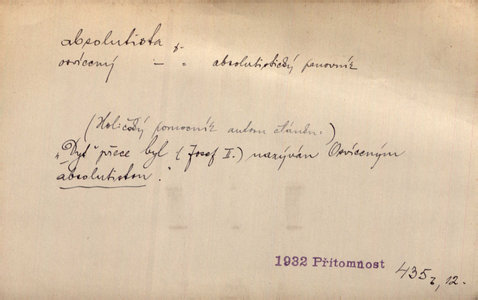 absolutista
osvícený — " absolutistický panovník
(Holičský pomocník autom článku.)
"Dyť přece byl (Josef II.) nazýván Osvíceným
absolutistou."
1932 Přítomnost 435₂, 12.